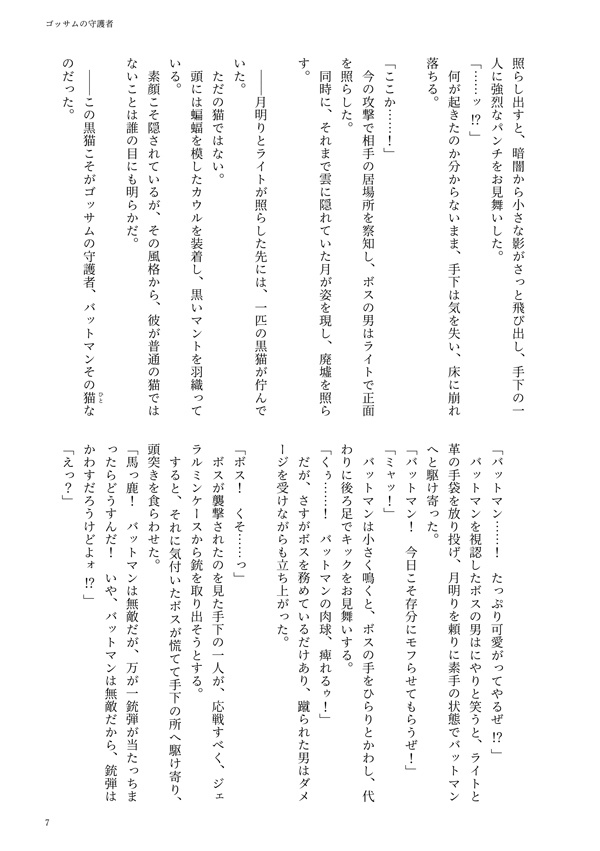 ゴッサムの守護者
照らし出すと、暗闇から小さな影がさっと飛び出し、手下の一
人に強烈なパンチをお見舞いした。
「……ッ⁉」
何が起きたのか分からないまま、手下は気を失い、床に崩れ
落ちる。
「ここか……！」
今の攻撃で相手の居場所を察知し、ボスの男はライトで正面
を照らした。
同時に、それまで雲に隠れていた月が姿を現し、廃墟を照ら
す。
――月明りとライトが照らした先には、一匹の黒猫が佇んで
いた。
ただの猫ではない。
頭には蝙蝠を模したカウルを装着し、黒いマントを羽織って
いる。
素顔こそ隠されているが、その風格から、彼が普通の猫では
ないことは誰の目にも明らかだ。
――この黒猫こそがゴッサムの守護者、バットマンその猫な
ひと
のだった。
「バットマン……！　たっぷり可愛がってやるぜ⁉」
バットマンを視認したボスの男はにやりと笑うと、ライトと
革の手袋を放り投げ、月明りを頼りに素手の状態でバットマン
へと駆け寄った。
「バットマン！　今日こそ存分にモフらせてもらうぜ！」
「ミャッ！」
バットマンは小さく鳴くと、ボスの手をひらりとかわし、代
わりに後ろ足でキックをお見舞いする。
「くぅ……！　バットマンの肉球、痺れるゥ！」
だが、さすがボスを務めているだけあり、蹴られた男はダメ
ージを受けながらも立ち上がった。
「ボス！　くそ……っ」
ボスが襲撃されたのを見た手下の一人が、応戦すべく、ジェ
ラルミンケースから銃を取り出そうとする。
すると、それに気付いたボスが慌てて手下の所へ駆け寄り、
頭突きを食らわせた。
「馬っ鹿！　バットマンは無敵だが、万が一銃弾が当たっちま
ったらどうすんだ！　いや、バットマンは無敵だから、銃弾は
かわすだろうけどよォ⁉」
「えっ？」
7